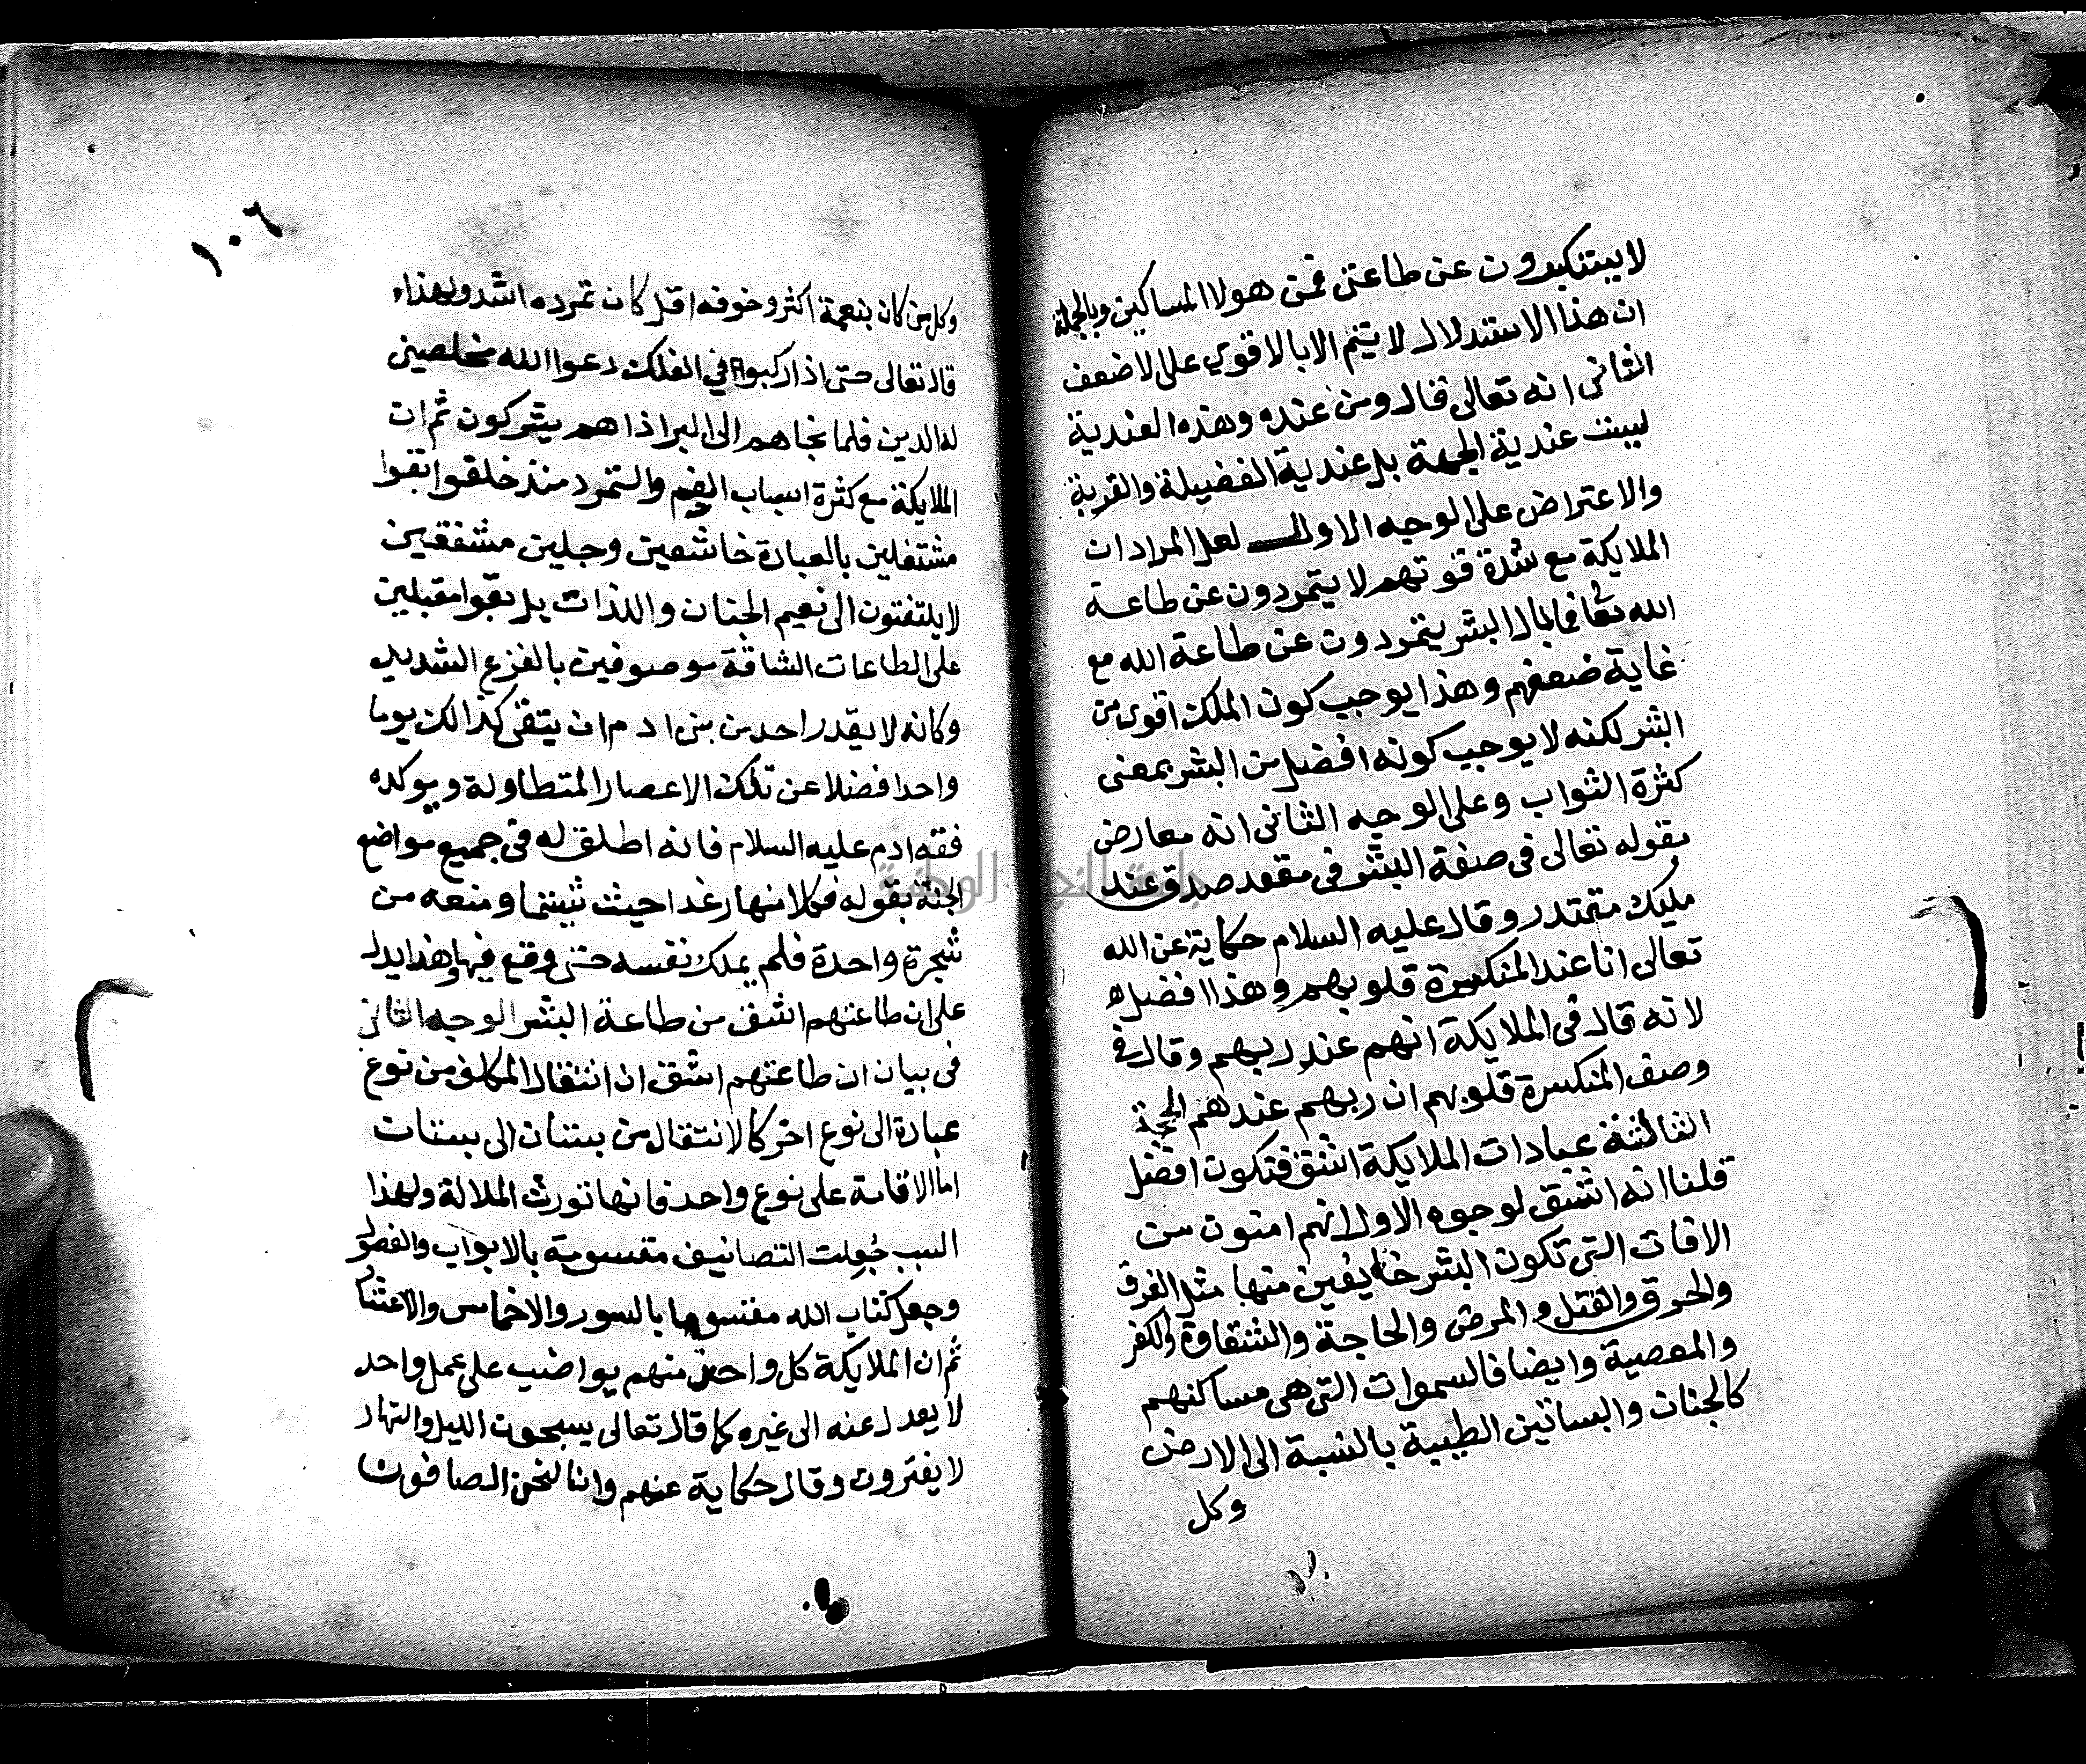 لا يستكبرون عن طاعتى فمن هولا المساكين وبالجملة
ان هذا الاستدلال لا يتم الا بالاقوى على الاضعف
الثانى انه تعالى قال ومن عنده وهذه العندية
ليست عندية الجهة بل عندية الفضيلة والقربة
والاعتراض على الوجه الاول لعل المراد ان
الملايكة مع شدة قوتهم لا يتمردون عن طاعة
الله تعا فما بال البشر يتمردون عن طاعة الله مع
غاية ضعفهم وهذا يوجب كون الملك اقوى من
البشر لكنه لا يوجب كونه افضل من البشر بمعنى
كثرة الثواب وعلى الوجه الثانى انه معارض
بقوله تعالى فى صفة البشر فى مقعد صدق عند
مليك مقتدر وقال عليه السلام حكاية عن الله
تعالى انا عند المنكسرة قلوبهم وهذا افضل
لانه قال فى الملايكة انهم عند ربهم وقال فى
وصف المنكسرة قلوبهم ان ربهم عندهم الحجة
الثالثة عبادات الملايكة اشق فتكون افضل
قلنا انه اشق لوجوه الاول انهم امنون من
الافات التى تكون البشر خايفين منها مثل الغرق
والحرق والقتل والمرض والحاجة والشقاوة والكفر
والمعصية وايضا فالسموات التى هى مساكنهم
كالجنات والبساتين الطيبة بالنسبة الى الارض
وكل
١٠٦
وكل من كان بنعمة اكثر وخوفه اقل كان تمرده اشد ولهذا
قال تعالى حتى اذا ركبوا فى الفلك دعوا الله مخلصين
له الدين فلما نجاهم الى البر اذا هم يشركون ثم ان
الملايكة مع كثرة اسباب والتمرد منذ خلقوا بقوا
مشتغلين بالعبادة خاشعين وجلين مشفقين
لا يلتفتون الى نعيم الجنان واللذات بل بقوا مقبلين
على الطاعات الشاقة موصوفين بالفزع الشديد
وكانه لا يقدر احد من بنى ادم ان يتقى كذلك يوما
واحدا فضلا عن تلك الاعصار المتطاولة ويوكده
فقه ادم عليه السلام فانه اطلق له فى جميع مواضع
الجنة بقوله فكلا منها رغدا حيث شيتما ومنعه من
شجرة واحدة فلم يملك نفسه حتى وقع فيها وهذا يدل
على ان طاعتهم اشق من طاعة البشر الوجه الثانى
فى بيان ان طاعتهم اشق ان انتقال المكلف من نوع
عبادة الى نوع اخر كالانتقال من بستان الى بستان
اما الاقامة على نوع واحد فانها تورث الملالة ولهذا
السبب جُعلت التصانيف مقسومة بالابواب والفصول
وجعل كتاب الله مقسوما بالسور والاخماس والاعشار
ثم ان الملايكة كل واحد منهم يواضب على عمل واحد
لا يعدل عنه الى غيره كما قال تعالى يسبحون الليل والنهار
لا يفترون وقال حكاية عنهم وانا لنحن الصافون